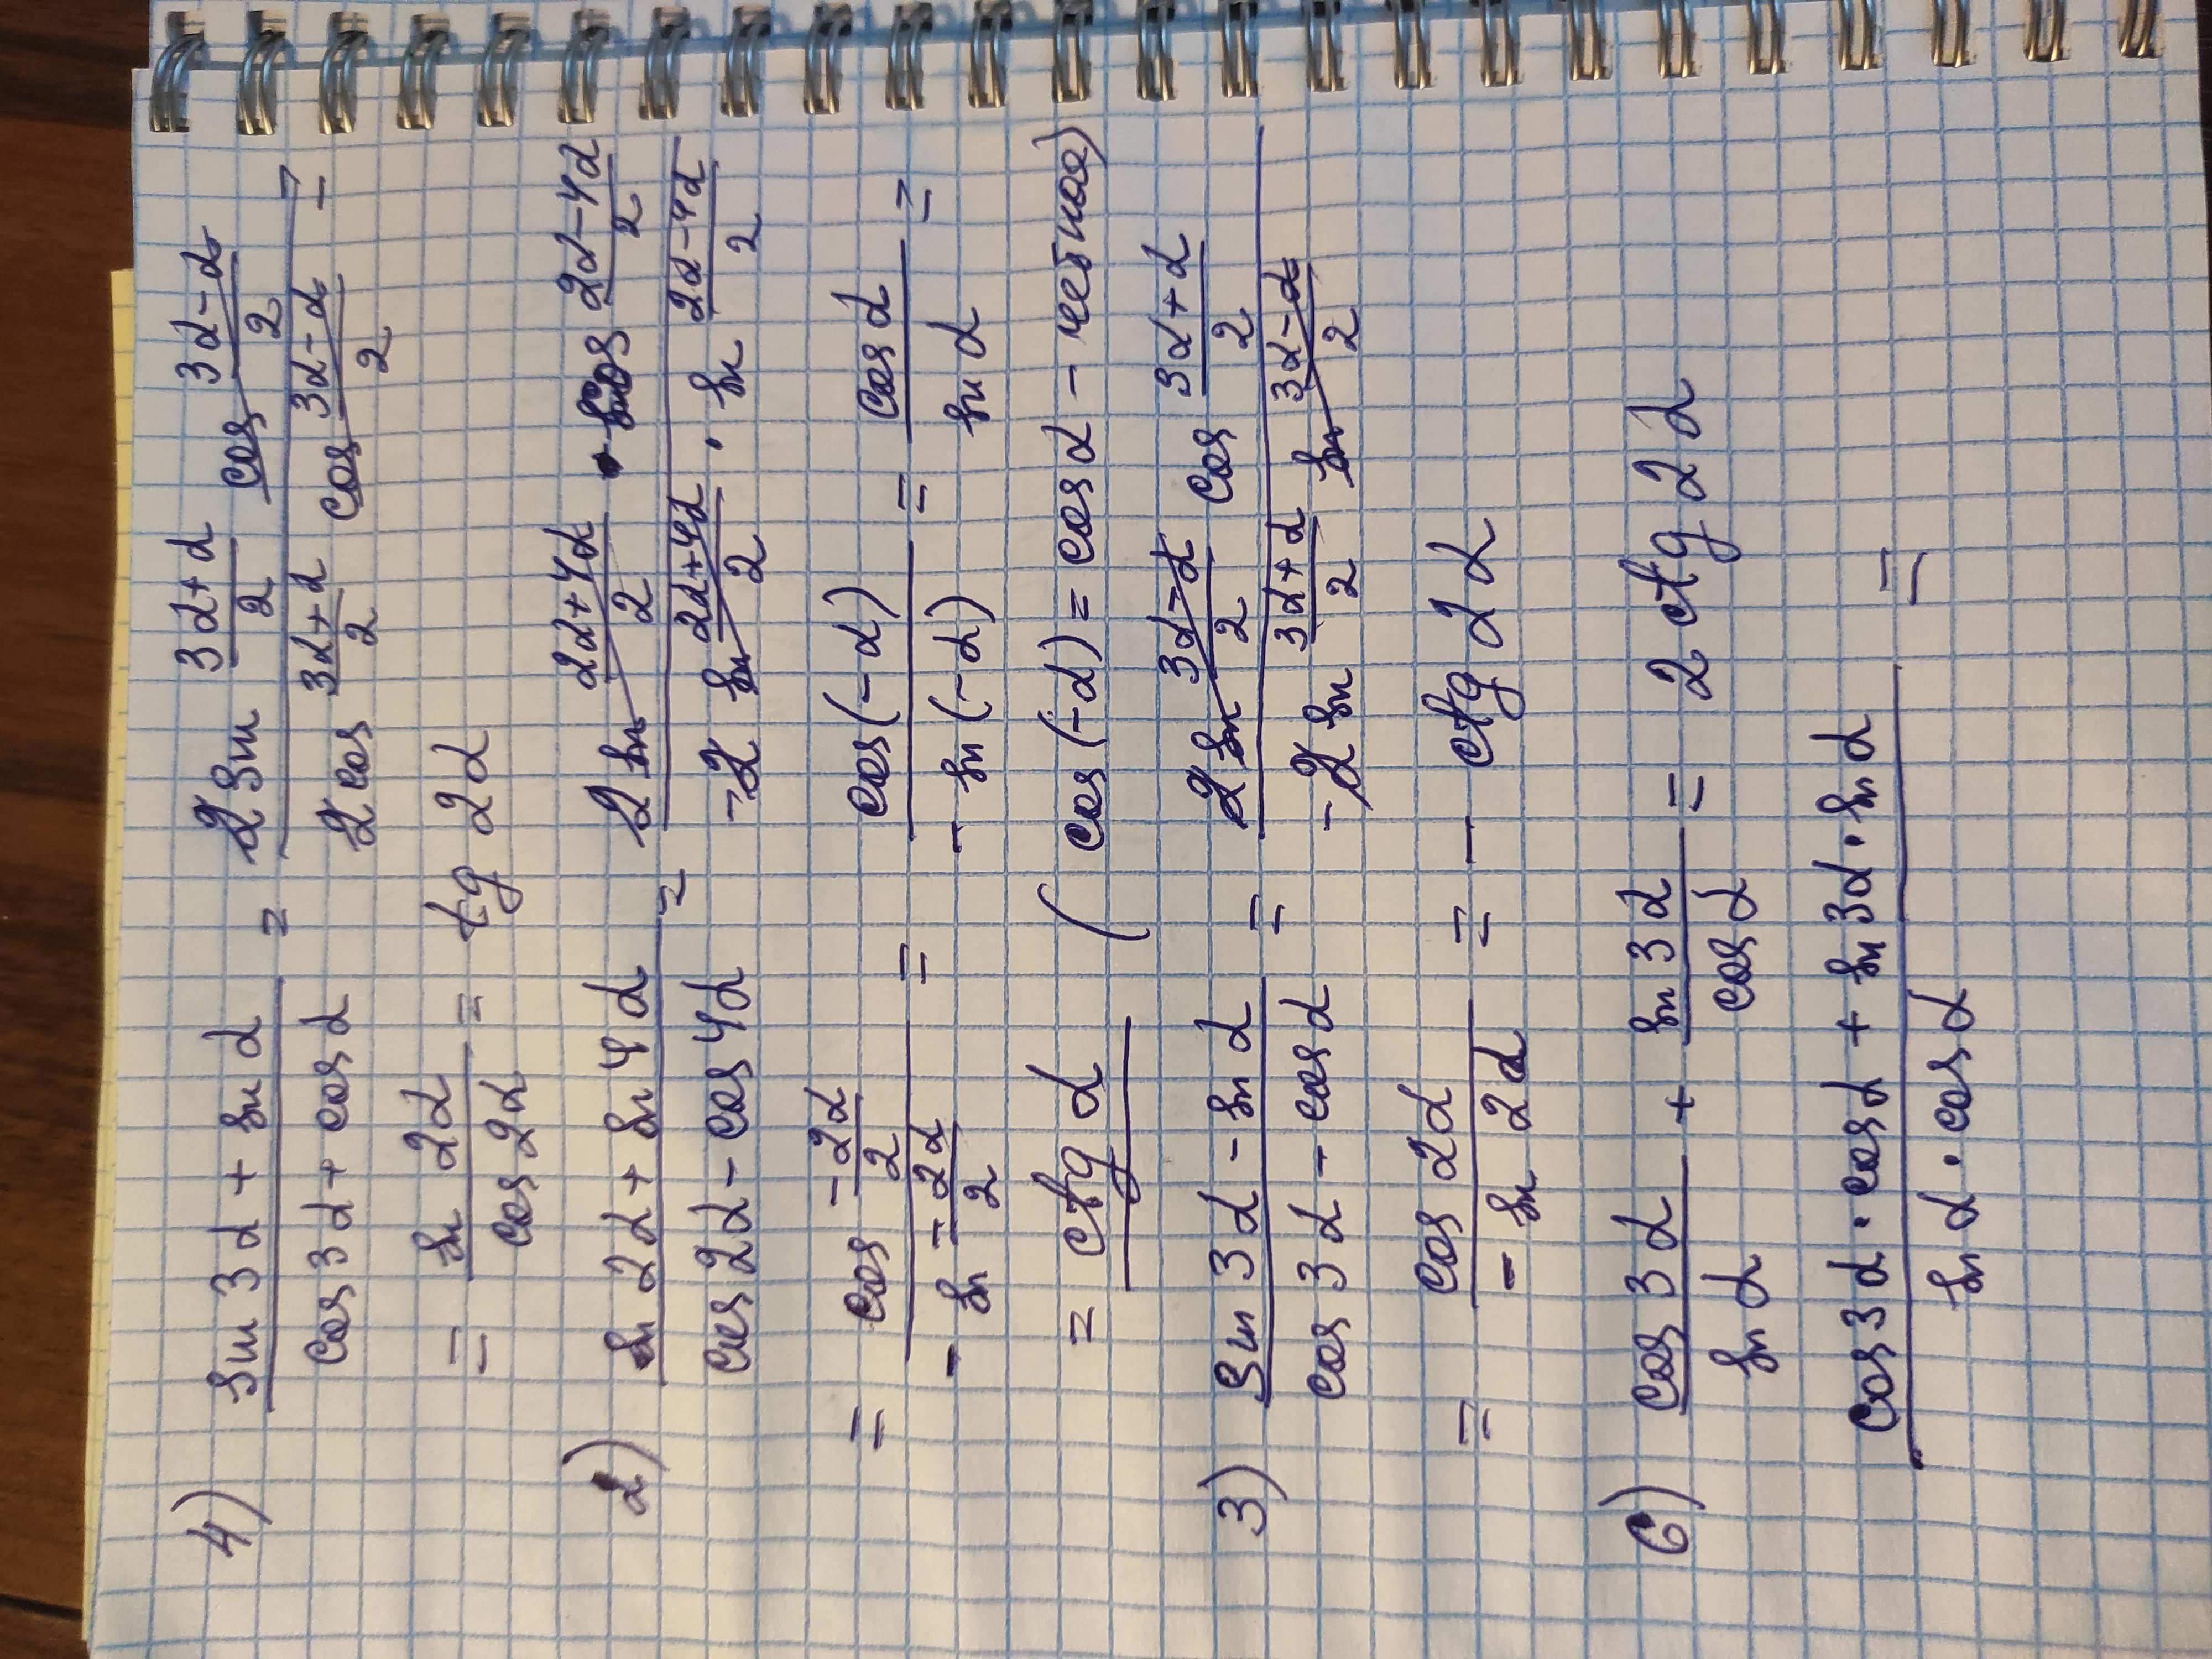 4) (sin 3α + sin α)/(cos 3α + cos α) = (2 sin (3α+α)/2 cos (3α-α)/2)/(2 cos (3α+α)/2 cos (3α-α)/2) =
= (sin 2α)/(cos 2α) = tg 2α
2) (sin 2α + sin 4α)/(cos 2α - cos 4α) = (2 sin (2α+4α)/2 · cos (2α-4α)/2)/(-2 sin (2α+4α)/2 · sin (2α-4α)/2)
= (cos (-2α)/2)/(- sin (-2α)/2) = (cos(-α))/(- sin(-α)) = (cos α)/(sin α) =
= ctg α (cos(-α) = cos α - четная)
3) (sin 3α - sin α)/(cos 3α - cos α) = (2 sin (3α-α)/2 cos (3α+α)/2)/(-2 sin (3α+α)/2 sin (3α-α)/2)
= (cos 2α)/(- sin 2α) = - ctg 2α
6) (cos 3α)/(sin α) + (sin 3α)/(cos α) = 2 ctg 2α
(cos 3α · cos α + sin 3α · sin α)/(sin α · cos α) =